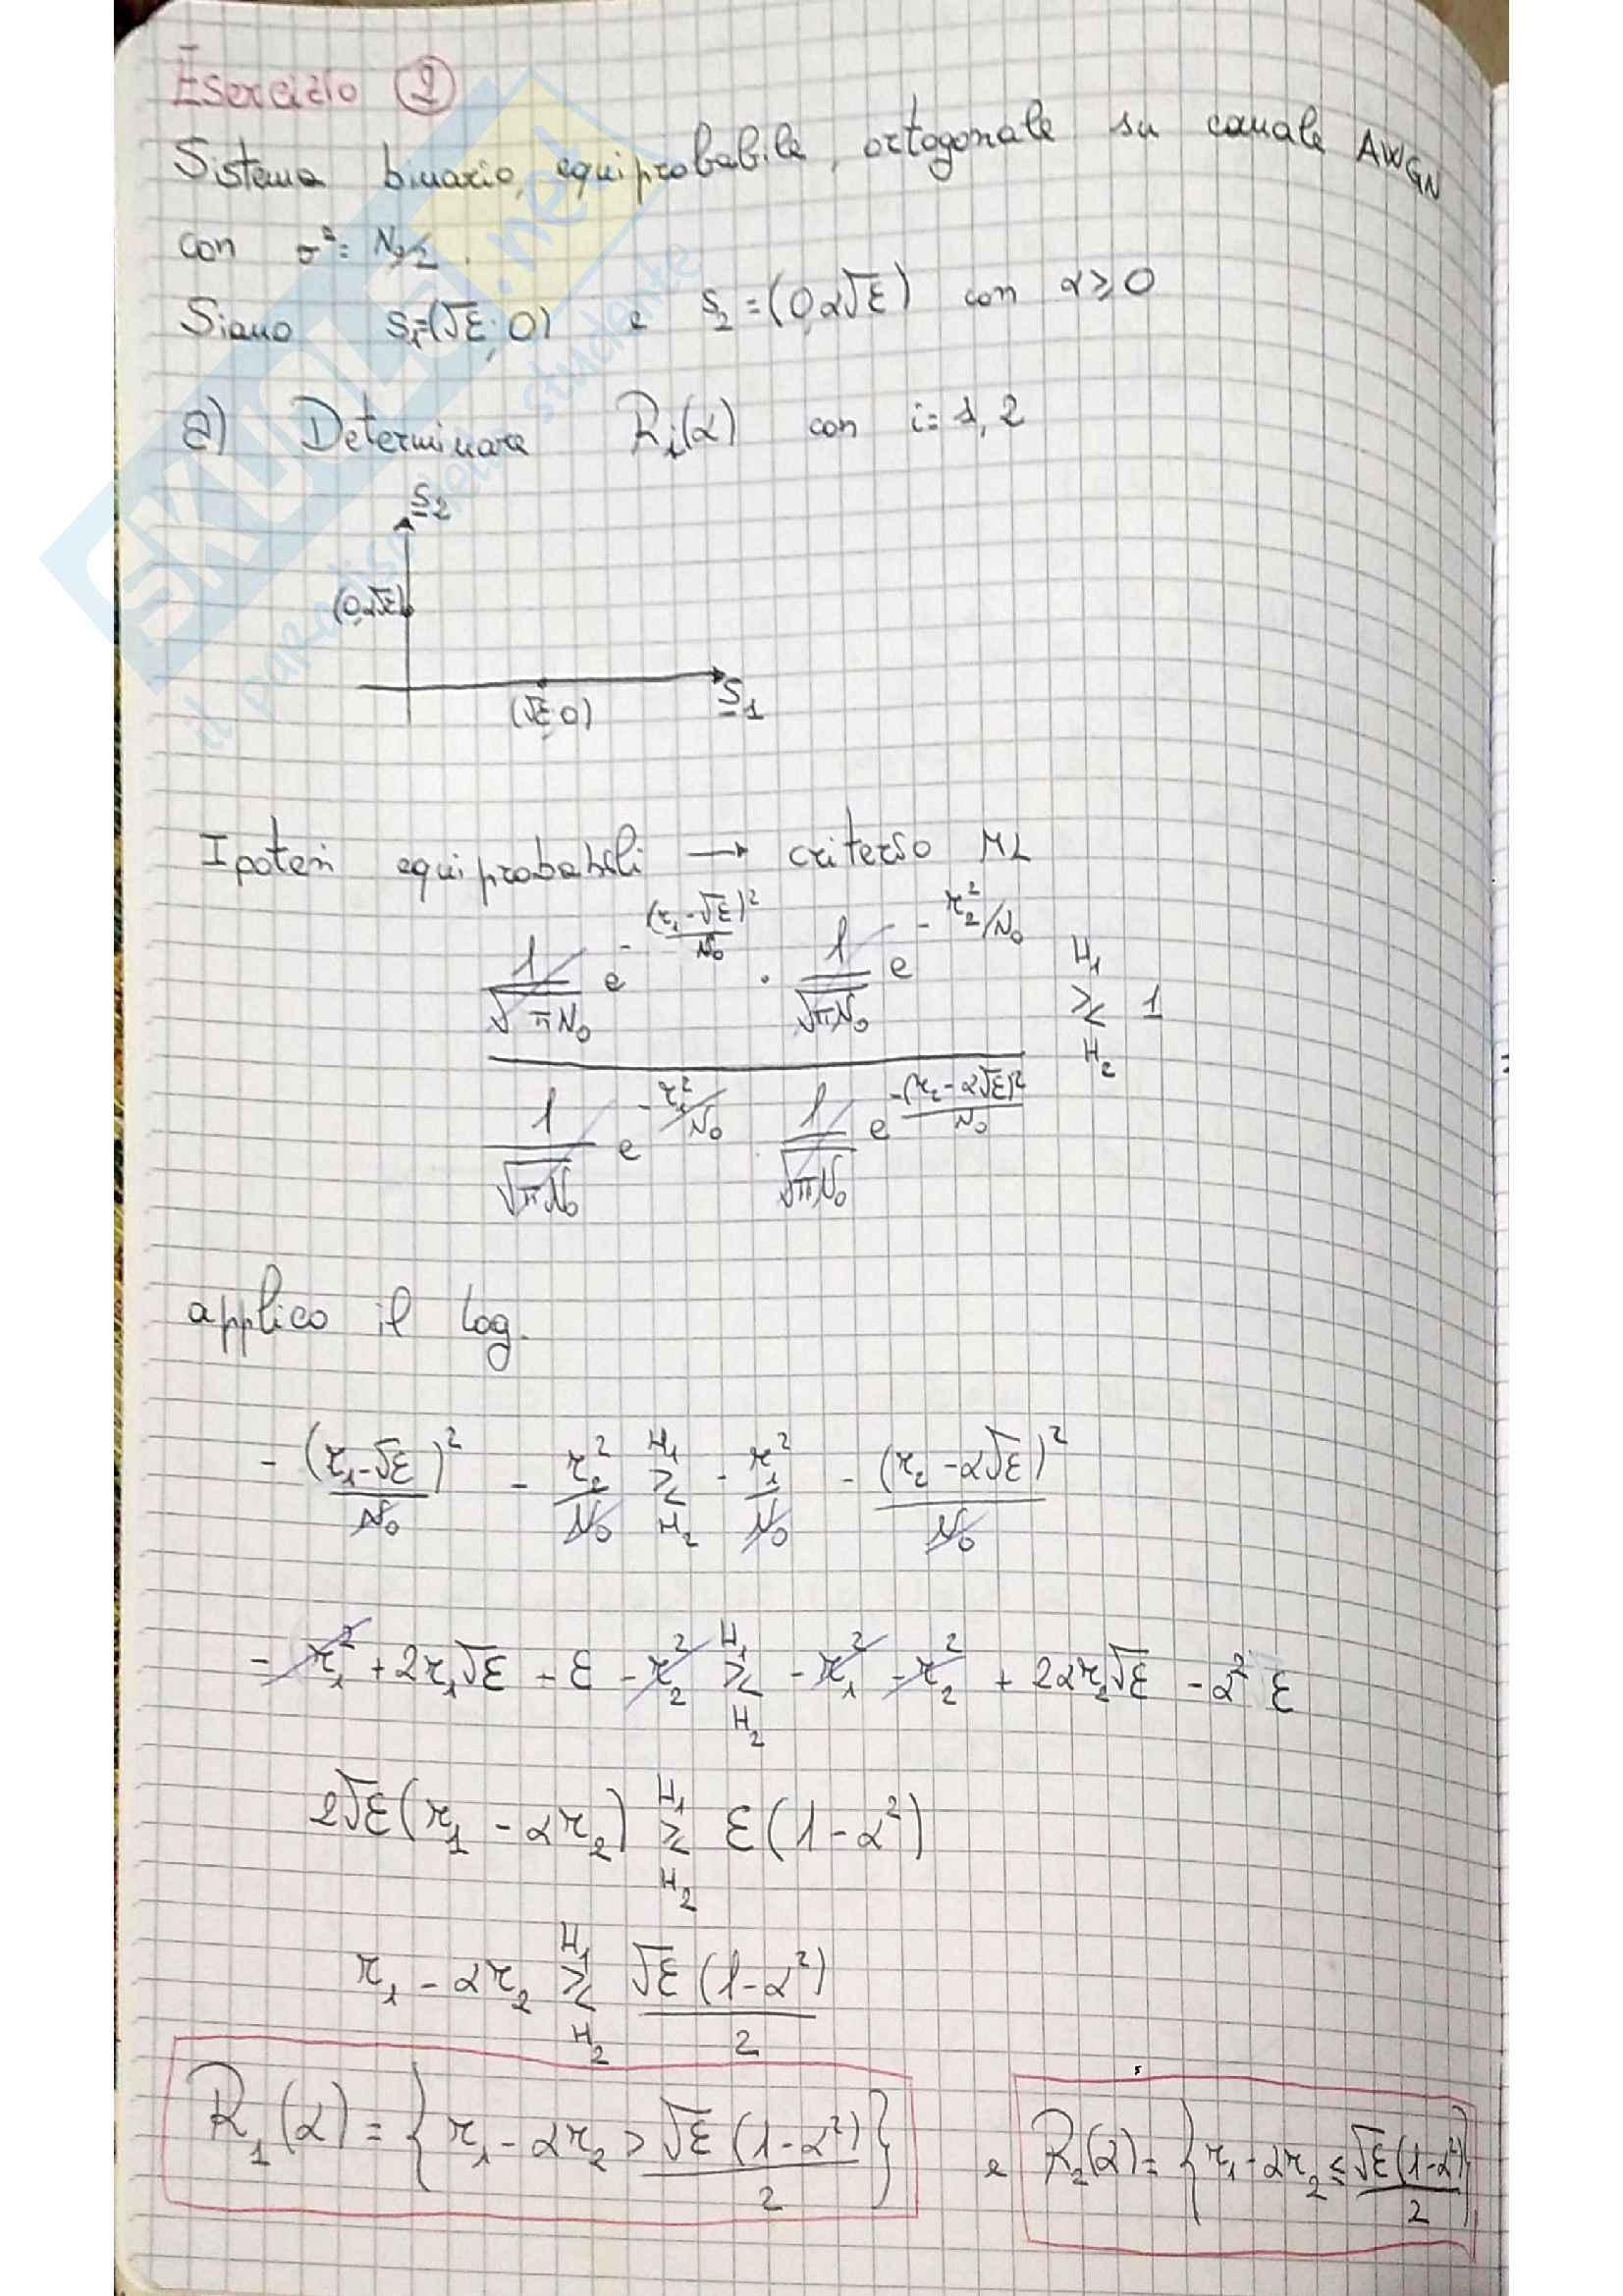 Esercizio ②
Sistema binario, equiprobabile, ortogonale su canale AWGN
con σ² = N₀/2.
Siano s₁=(√ε; 0) e s₂=(0,α√ε) con α≥0
a) Determinare Rᵢ(α) con i=1,2
s₂
(0,α√ε)
(√ε,0)
s₁
Ipotesi equiprobabili → criterio ML
1/√(πN₀) e^(-(r₁-√ε)²/N₀) · 1/√(πN₀) e^(-r₂²/N₀)
H₁ ≷ H₂ 1
1/√(πN₀) e^(-r₁²/N₀) · 1/√(πN₀) e^(-(r₂-α√ε)²/N₀)
applico il log.
- (r₁-√ε)²/N₀ - r₂²/N₀ H₁ ≷ H₂ - r₁²/N₀ - (r₂-α√ε)²/N₀
- r₁² + 2r₁√ε - ε - r₂² H₁ ≷ H₂ - r₁² - r₂² + 2αr₂√ε - α² ε
2√ε(r₁ - αr₂) H₁ ≷ H₂ ε(1-α²)
r₁ - αr₂ H₁ ≷ H₂ √ε(1-α²)/2
R₁(α) = {r₁ - αr₂ > √ε(1-α²)/2} e R₂(α) = {r₁ - αr₂ ≤ √ε(1-α²)/2}
SKUOLA.net
il paradiso dello studente